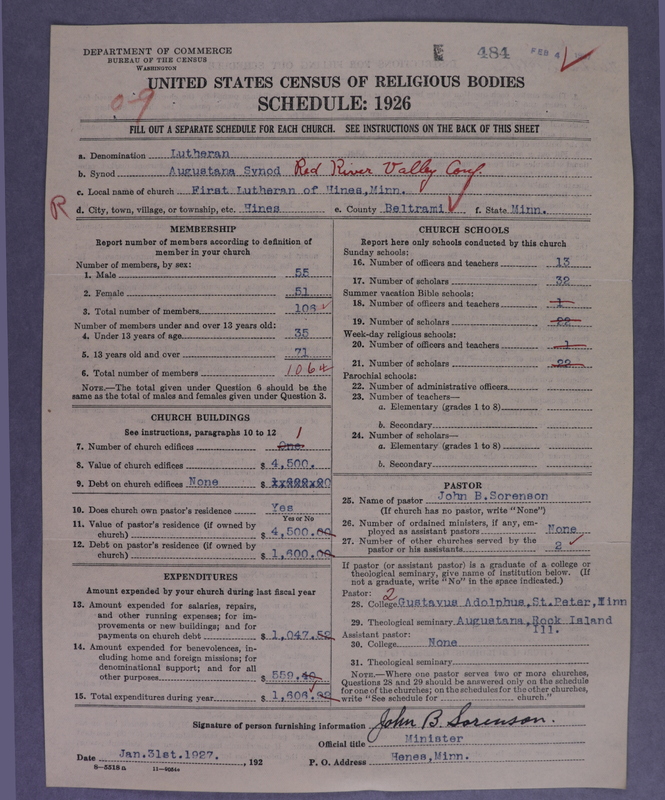 DEPARTMENT OF COMMERCE
BUREAU OF THE CENSUS
WASHINGTON
484 FEB 4
UNITED STATES CENSUS OF RELIGIOUS BODIES
SCHEDULE: 1926
09
FILL OUT A SEPARATE SCHEDULE FOR EACH CHURCH. SEE INSTRUCTIONS ON THE BACK OF THIS SHEET
a. Denomination Lutheran
b. Synod Augustana Synod Red River Valley Conf.
c. Local name of church First Lutheran of Hines, Minn.
R d. City, town, village, or township, etc. Hines e. County Beltrami f. State Minn.
MEMBERSHIP
Report number of members according to definition of
member in your church
Number of members, by sex:
1. Male 55
2. Female 51
3. Total number of members 106
Number of members under and over 13 years old:
4. Under 13 years of age 35
5. 13 years old and over 71
6. Total number of members 106
NOTE.—The total given under Question 6 should be the
same as the total of males and females given under Question 3.
CHURCH BUILDINGS
See instructions, paragraphs 10 to 12
7. Number of church edifices One 1
8. Value of church edifices $ 4,500.
9. Debt on church edifices None $
10. Does church own pastor's residence Yes
Yes or No
11. Value of pastor's residence (if owned by
church) $ 4,500.00
12. Debt on pastor's residence (if owned by
church) $ 1,600.00
EXPENDITURES
Amount expended by your church during last fiscal year
13. Amount expended for salaries, repairs,
and other running expenses; for im-
provements or new buildings; and for
payments on church debt $ 1,047.52
14. Amount expended for benevolences, in-
cluding home and foreign missions; for
denominational support; and for all
other purposes $ 559.40
15. Total expenditures during year $ 1,606.92
CHURCH SCHOOLS
Report here only schools conducted by this church
Sunday schools:
16. Number of officers and teachers 13
17. Number of scholars 32
Summer vacation Bible schools:
18. Number of officers and teachers 1
19. Number of scholars 22
Week-day religious schools:
20. Number of officers and teachers 1
21. Number of scholars 22
Parochial schools:
22. Number of administrative officers
23. Number of teachers—
a. Elementary (grades 1 to 8)
b. Secondary
24. Number of scholars—
a. Elementary (grades 1 to 8)
b. Secondary
PASTOR
25. Name of pastor John B. Sorenson
(If church has no pastor, write "None")
26. Number of ordained ministers, if any, em-
ployed as assistant pastors None
27. Number of other churches served by the
pastor or his assistants 2
If pastor (or assistant pastor) is a graduate of a college or
theological seminary, give name of institution below. (If
not a graduate, write "No" in the space indicated.)
Pastor: 2
28. College Gustavus Adolphus, St. Peter, Minn
29. Theological seminary Augustana, Rock Island
Ill.
Assistant pastor:
30. College None
31. Theological seminary
NOTE.—Where one pastor serves two or more churches,
Questions 28 and 29 should be answered only on the schedule
for one of the churches; on the schedules for the other churches,
write "See schedule for church."
Signature of person furnishing information John B. Sorenson.
Official title Minister
Date Jan. 31st. 1927. , 192 P. O. Address Henes, Minn.
8—5518a 11—9954a